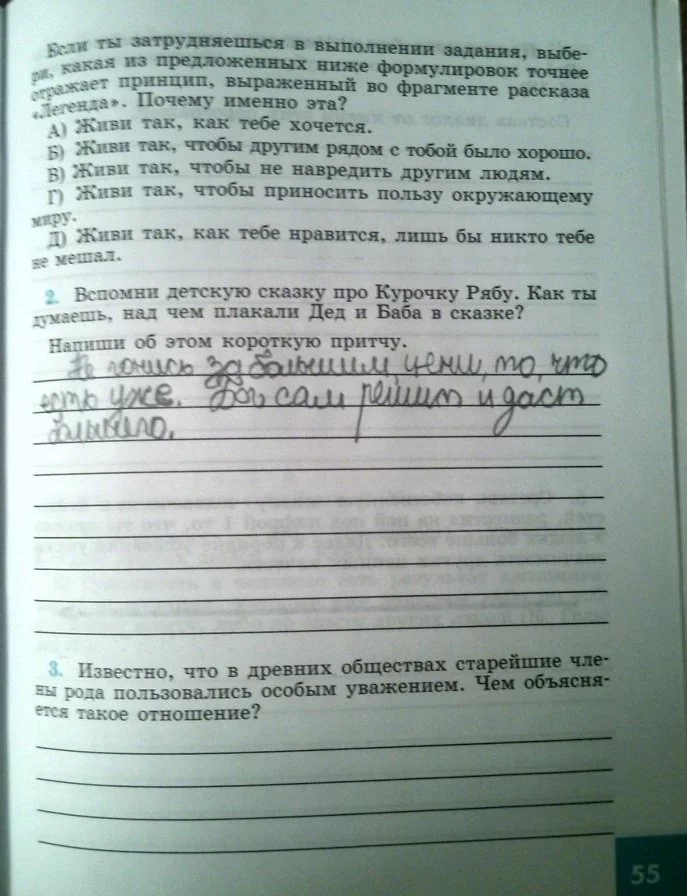 Если ты затрудняешься в выполнении задания, выбе-
ри, какая из предложенных ниже формулировок точнее
отражает принцип, выраженный во фрагменте рассказа
«Легенда». Почему именно эта?
А) Живи так, как тебе хочется.
Б) Живи так, чтобы другим рядом с тобой было хорошо.
В) Живи так, чтобы не навредить другим людям.
Г) Живи так, чтобы приносить пользу окружающему
миру.
Д) Живи так, как тебе нравится, лишь бы никто тебе
не мешал.
2. Вспомни детскую сказку про Курочку Рябу. Как ты
думаешь, над чем плакали Дед и Баба в сказке?
Напиши об этом короткую притчу.
Не гонись за большим, цени, то, что
есть уже. Бог сам решит и даст
большего.
3. Известно, что в древних обществах старейшие чле-
ны рода пользовались особым уважением. Чем объясня-
ется такое отношение?
55